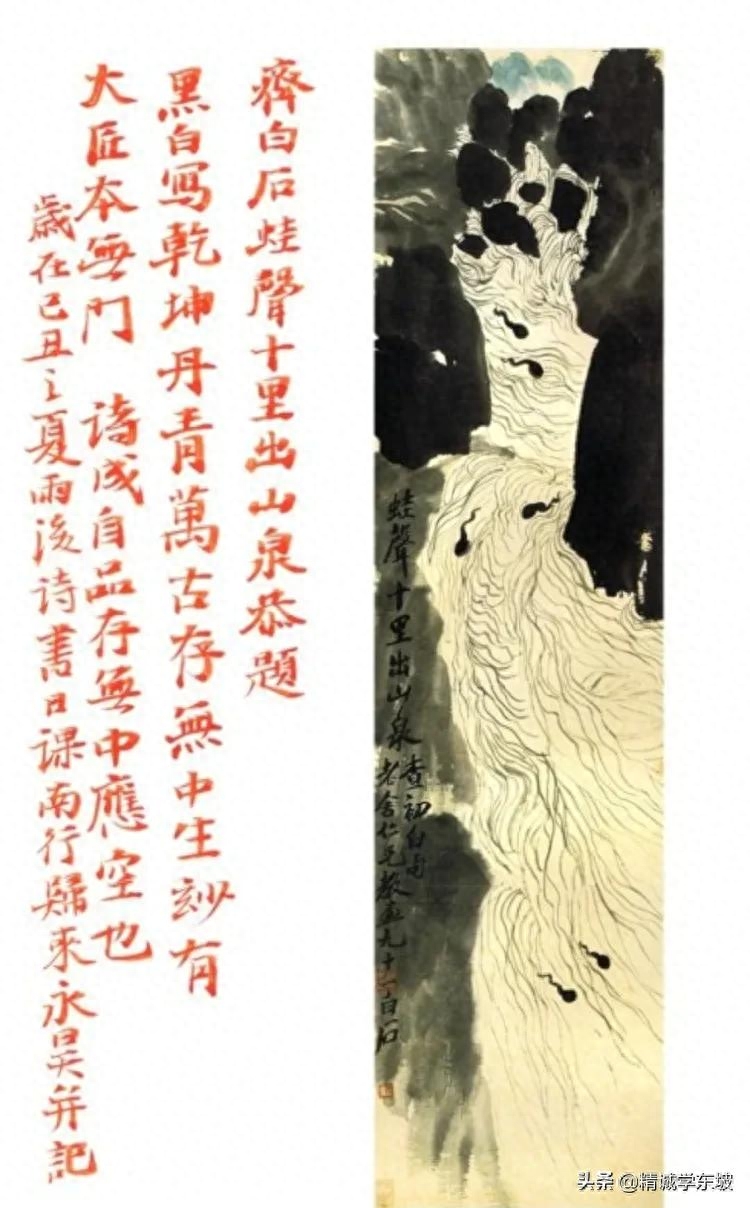 齊白石蛙聲十里出山泉恭題
黑白寫乾坤丹青萬古存無中生玅有
大匠本無門 詩成自品存無中應空也
歲在己丑之夏雨後詩書日課南行歸來永昊并記
蛙聲十里出山泉
查初白句
老舍仁兄教畫九十一白石
头条 @精诚学东坡